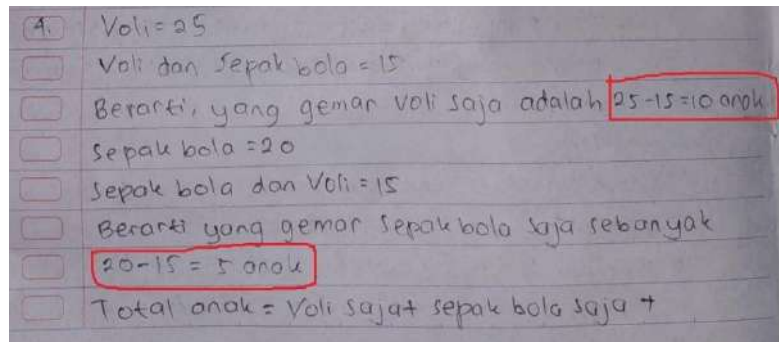 4. Voli = 25
Voli dan Sepak bola = 15
Berarti, yang gemar Voli saja adalah 25-15=10 anak
Sepak bola = 20
Sepak bola dan Voli = 15
Berarti yang gemar Sepak bola saja sebanyak
20-15 = 5 anak
Total anak = Voli saja + sepak bola saja +